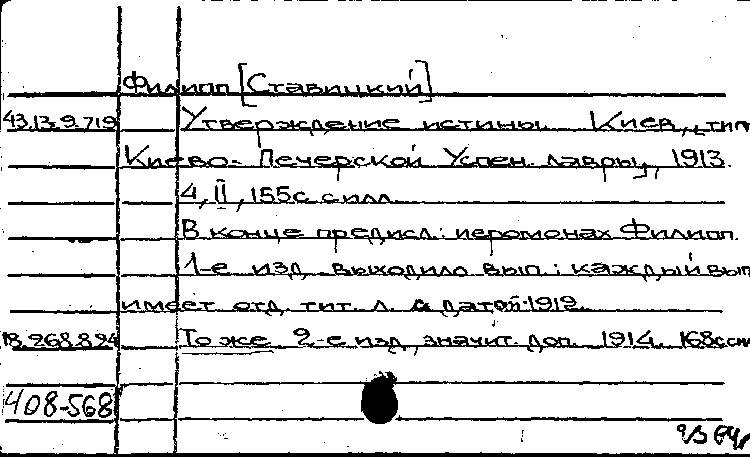 Филипп [Ставицкий]
43.13.9.719 Утверждение истины. Киев, тип.
Киево-Печерской Успен. лавры, 1913.
4, II, 155 с. с илл.
В конце предисл.: иеромонах Филипп.
1-е изд. выходило вып.: каждый вып.
имеет отд. тит. л. с датой: 1912.
18.268.8.94 То же 2-е изд., значит. доп. 1914. 168 с. с ил
408-568